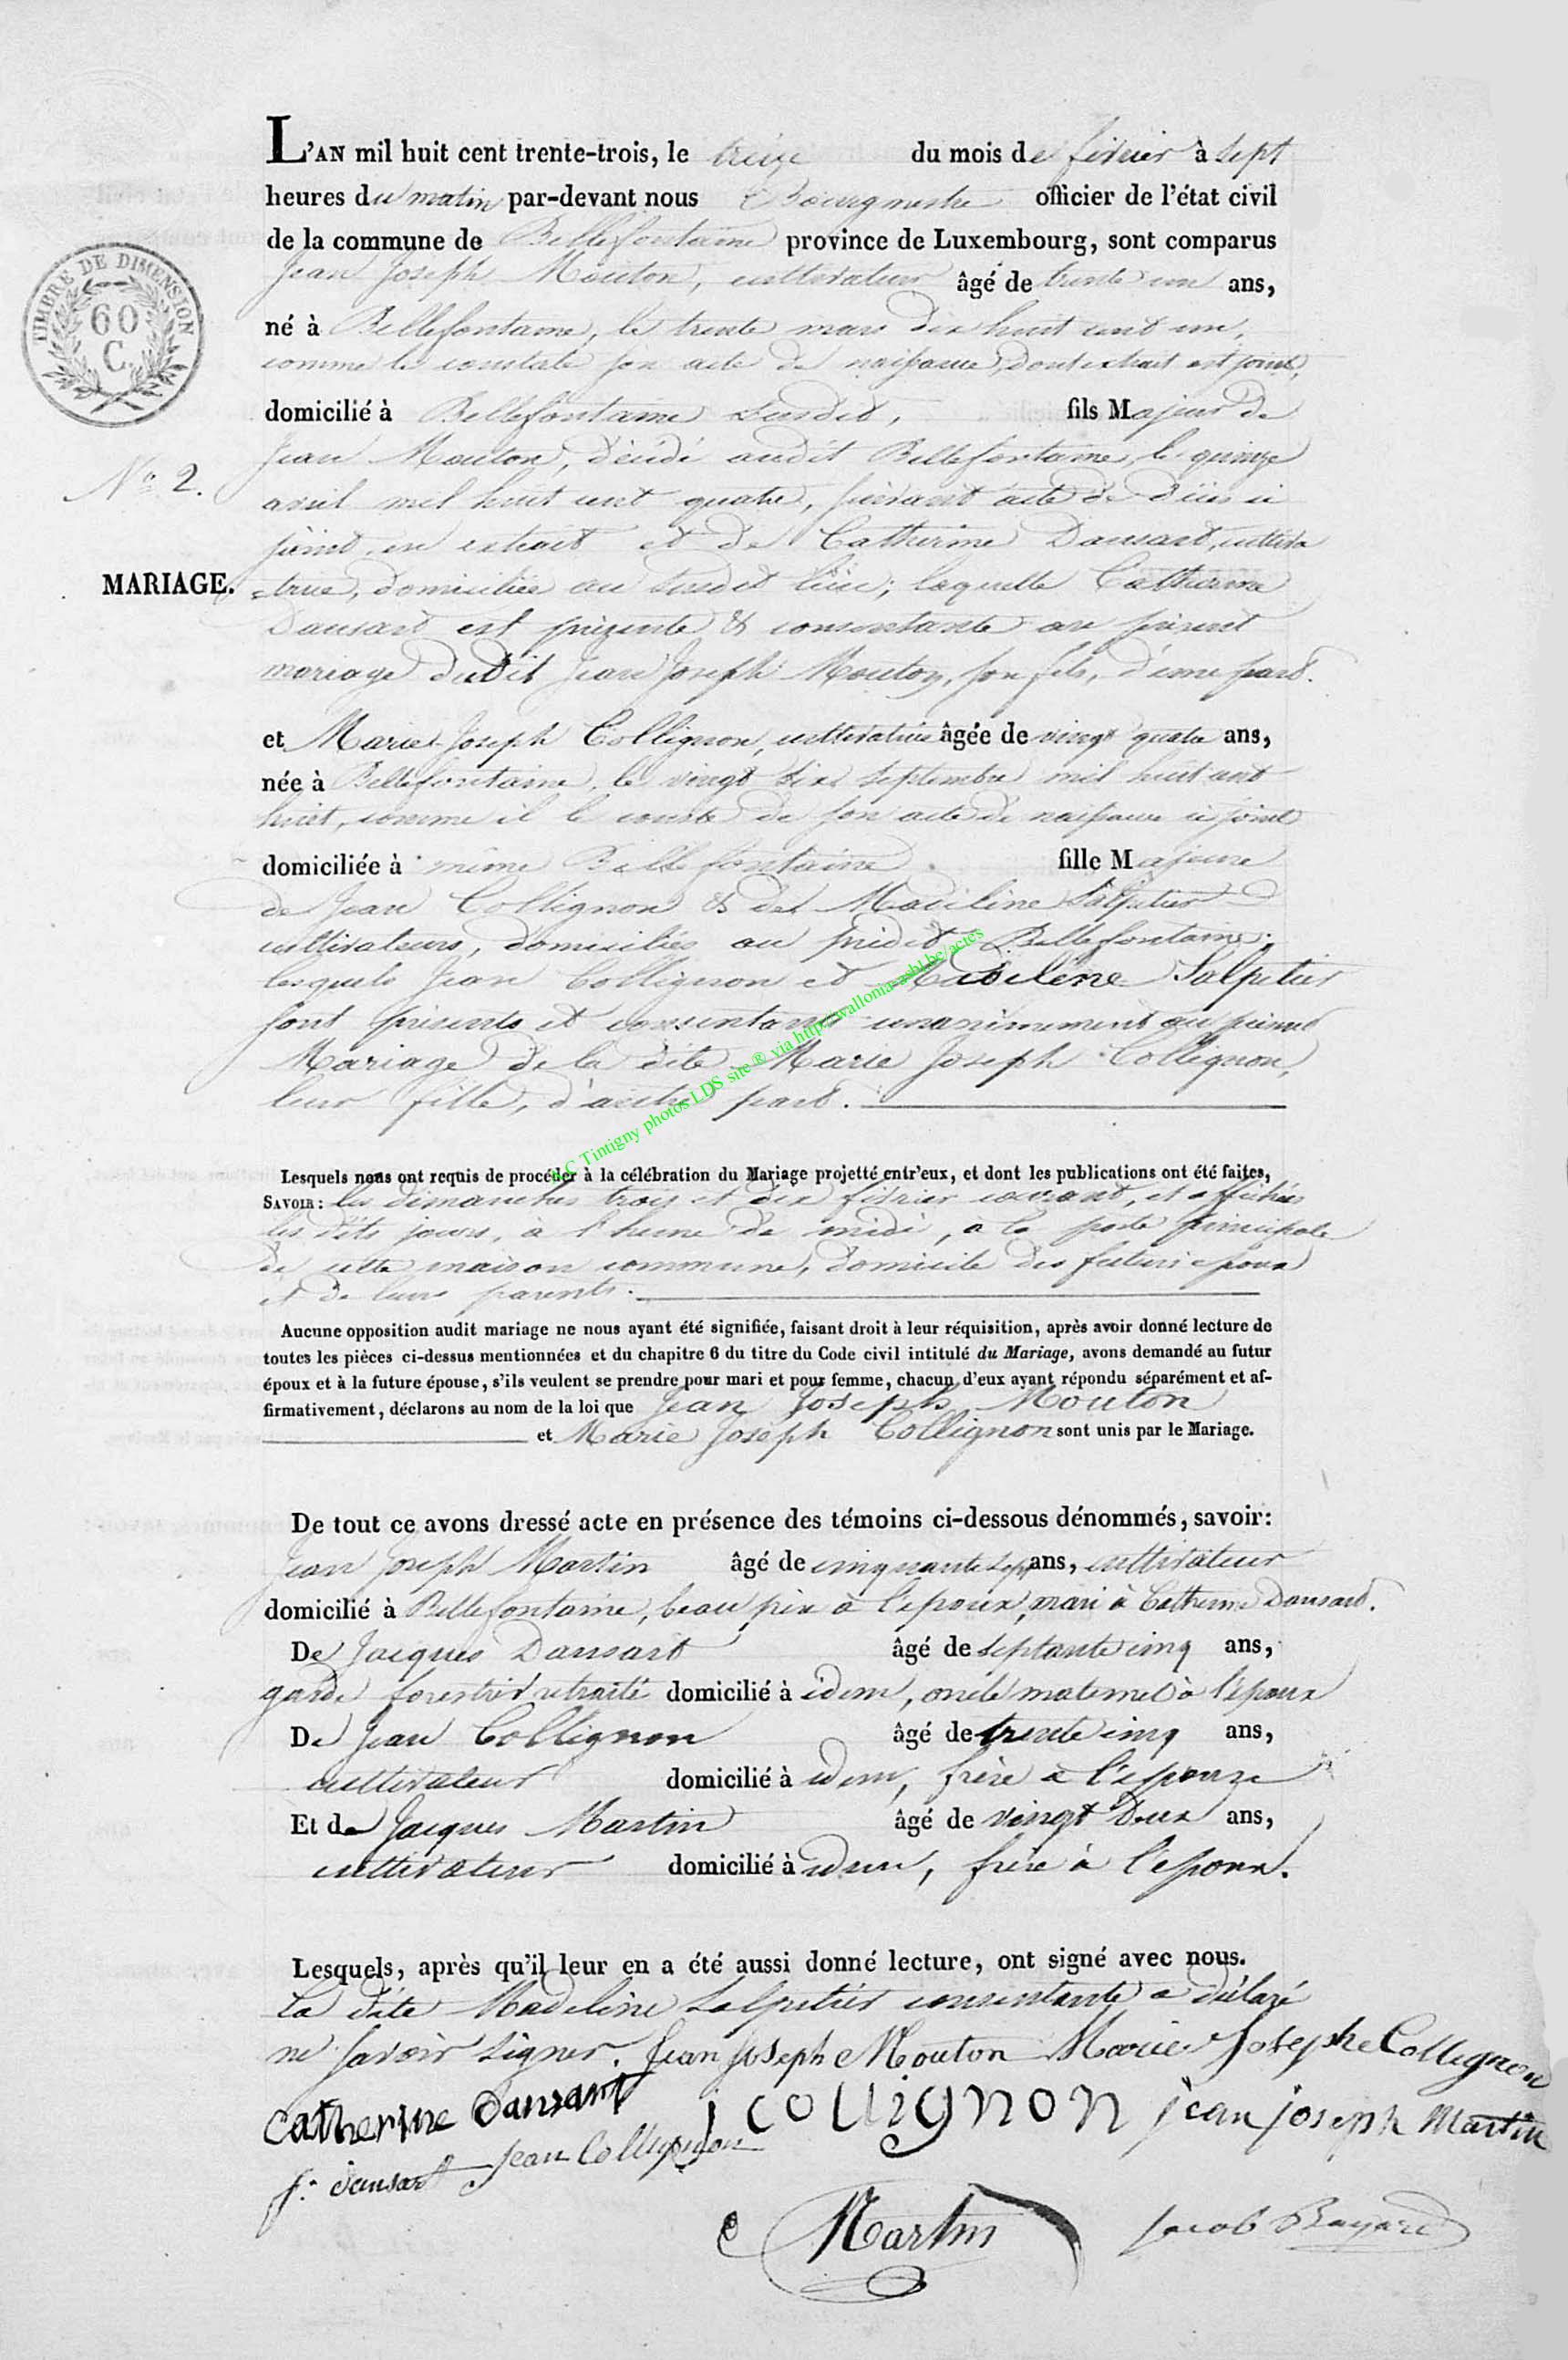 L'AN mil huit cent trente-trois, le treize du mois de février à sept
heures du matin par-devant nous Bourgmestre officier de l'état civil
de la commune de Bellefontaine province de Luxembourg, sont comparus
Jean Joseph Mouton, cultivateur âgé de trente un ans,
né à Bellefontaine, le trente mars dix huit cent un,
comme le constate son acte de naissance, dont extrait est joint,
domicilié à Bellefontaine susdit, fils Majeur de
Jean Mouton, décédé audit Bellefontaine, le quinze
avril mil huit cent quatre, suivant acte de décès ci
joint en extrait et de Catherine Dansart, cultiva
=trice, domiciliée au susdit lieu; laquelle Catherine
Dansart est présente & consentante au présent
mariage dudit Jean Joseph Mouton, son fils, d'une part.
et Marie Joseph Collignon, cultivatrice âgée de vingt quatre ans,
née à Bellefontaine, le vingt six septembre mil huit cent
huit, comme il le conste de son acte de naissance ci joint
domiciliée à même Bellefontaine. fille Majeure
de Jean Collignon & de Madeline Salpetier
cultivateurs, domiciliés au prédit Bellefontaine;
lesquels Jean Collignon et Madelene Salpetier
sont présents et consentants unanimement au présent
Mariage de la dite Marie Joseph Collignon,
leur fille, d'autre part.
Lesquels nous ont requis de procéder à la célébration du Mariage projetté entr'eux, et dont les publications ont été faites,
SAVOIR: les dimanches trois et dix février courant, et affichées
les dits jours, à l'heure de midi, à la porte principale
de cette maison commune, domicile des futurs époux
et de leurs parents.
Aucune opposition audit mariage ne nous ayant été signifiée, faisant droit à leur réquisition, après avoir donné lecture de
toutes les pièces ci-dessus mentionnées et du chapitre 6 du titre du Code civil intitulé du Mariage, avons demandé au futur
époux et à la future épouse, s'ils veulent se prendre pour mari et pour femme, chacun d'eux ayant répondu séparément et af-
firmativement, déclarons au nom de la loi que Jean Joseph Mouton
et Marie Joseph Collignon sont unis par le Mariage.
De tout ce avons dressé acte en présence des témoins ci-dessous dénommés, savoir:
Jean Joseph Martin âgé de cinquante sept ans, cultivateur
domicilié à Bellefontaine, beau père à l'époux, mari à Catherine Dansart.
De Jacques Dansart âgé de septante cinq ans,
garde forestier retraité domicilié à idem, oncle maternel à l'époux
De Jean Collignon âgé de trente cinq ans,
cultivateur domicilié à idem, frère à l'épouze
Et de Jacques Martin âgé de vingt deux ans,
cultivateur domicilié à idem, frère à l'époux.
Lesquels, après qu'il leur en a été aussi donné lecture, ont signé avec nous.
La dite Madeline Salpetier consentante a déclaré
ne savoir signer. Jean Joseph Mouton Marie Josephe Collignon
Catherine Dansart j collignon jean joseph Martin
J. dansart Jean Collignon
Martin Jacob Bayard
TIMBRE DE DIMENSION
60
C.
N.o 2.
MARIAGE.
Tintigny photos LDS site ® via http://wallonia-asbl.be/actes